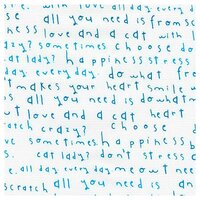 se. with love all day every
all you need is from sc
ness love and a cat with
ry? sometimes. choose do
cat lady? happiness stress
day every day. do what fre
t makes your heart smile w
se all you need is do what m
love and a cat heart
ratch crazy? choose d
ve sometimes. happiness b
s. cat lady? don't stress c
e. all day every day meow t need
scratch all you need is an